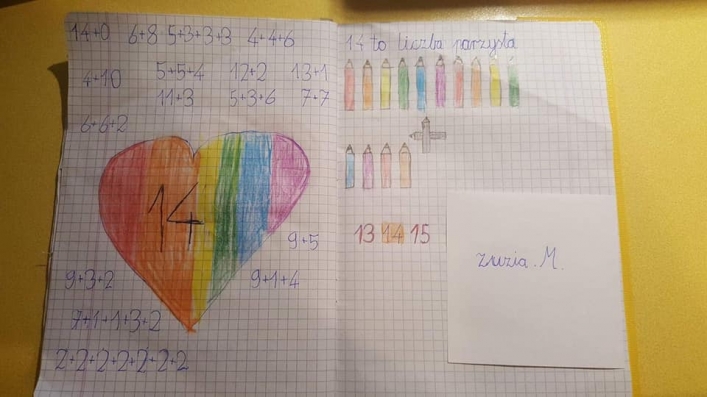 14+0 6+8 5+3+3+3 4+4+6
4+10 5+5+4 12+2 13+1
11+3 5+3+6 7+7
6+6+2
14
9+5
9+3+2 9+1+4
7+1+1+3+2
2+2+2+2+2+2+2
14 to liczba parzysta
13 14 15
zuzia. M.